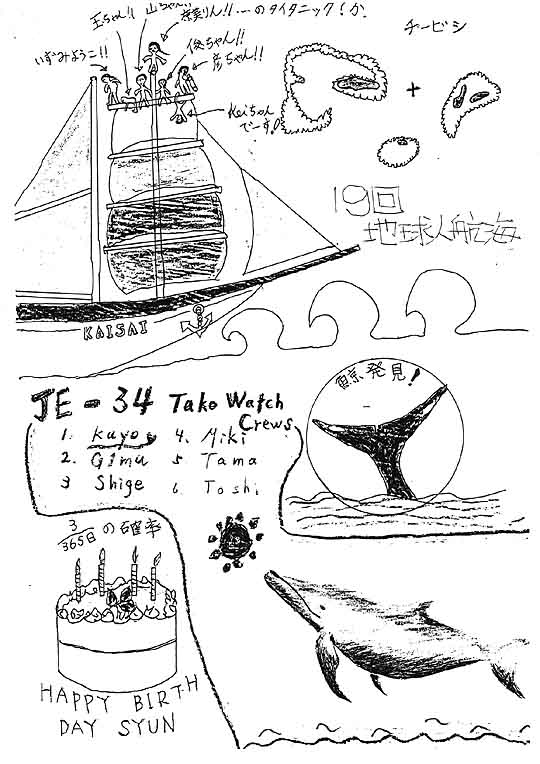 玉ちゃん!!
山ちゃん!!
りん!!…のタイタニック!か
いずみようこ!!
俊ちゃん!!
彦ちゃん!!
Keiちゃん
でーす!
チービシ
+
19回
地球人航海
KAISAI
JE-34 Tako Watch
Crews
1. Kayo
2. Gimu
3 Shige
4. Miki
5 Tama
6. Toshi
鯨発見!
3/365日の確率
HAPPY BIRTH
DAY SYUN